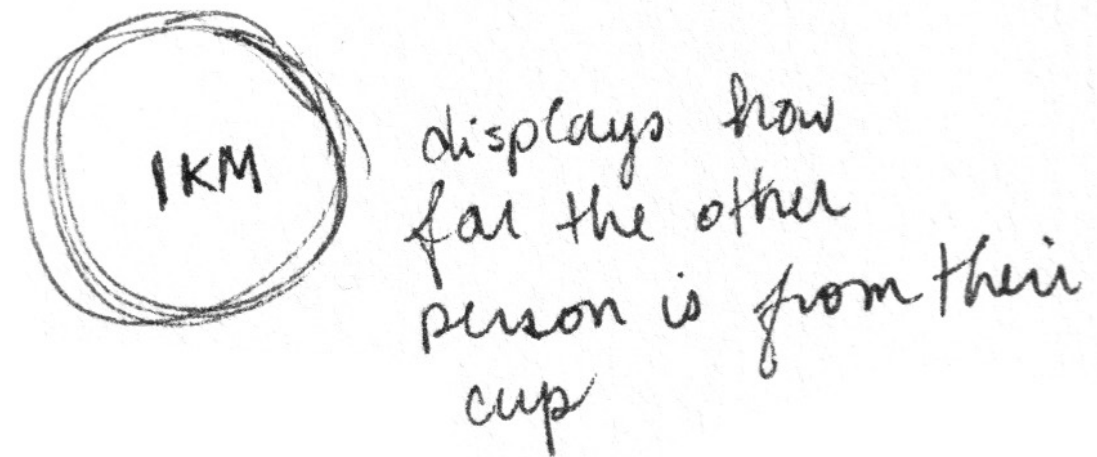 1KM
displays how
far the other
person is from their
cup